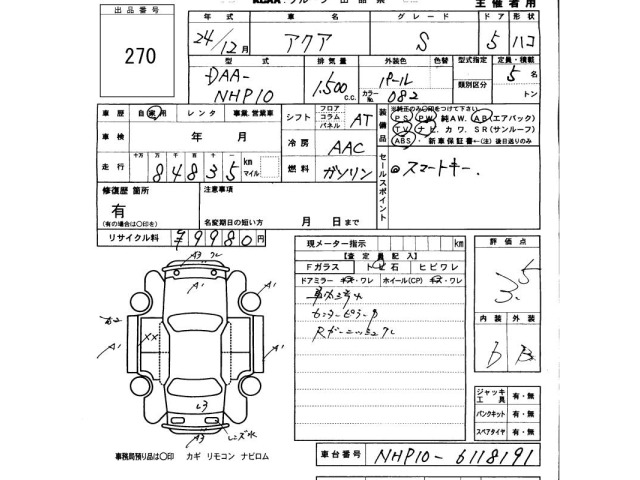 主催者用
出品番号
270
年式 車名 グレード ドア 形状
24/12月 アクア S 5 ハコ
型式 排気量 外装色 色替 型式指定 定員・積載
DAA-NHP10 1,500 c.c. パール 類別区分 5名
カラーNo. 082 トン
車歴 自家用 レンタ 事業、営業車
シフト フロア コラム パネル AT
装備品
※純正品のみ〇印をつけて下さい。
PS PW 純AW. AB(エアバック)
TV ナビ カワ. SR(サンルーフ)
ABS 新車保証書←(注)後日送りのみ
車検 年 月
冷房 AAC
走行 十万 万 千 百 十 一 84835 km マイル
燃料 ガソリン
セールスポイント
◎スマートキー.
修復歴 箇所
有
(有の場合は〇印を)
注意事項
名変期日の短い方 月 日まで
リサイクル料 ¥9980円
現メーター指示 km
【査定員記入】
Fガラス トビ石 ヒビワレ
ドアミラー キズ・ワレ ホイール(CP) キズ・ワレ
センターピラーP
Rガーニッシュワレ
評価点
3.5
内装 外装
b B
A3 ワレ
A1 A1
A2 XX
A1 A1
A1
L3
A3 レンズ水
ジャッキ 工具 有・無
パンクキット 有・無
スペアタイヤ 有・無
事務局預り品は〇印 カギ リモコン ナビロム
車台番号 NHP10-6118191